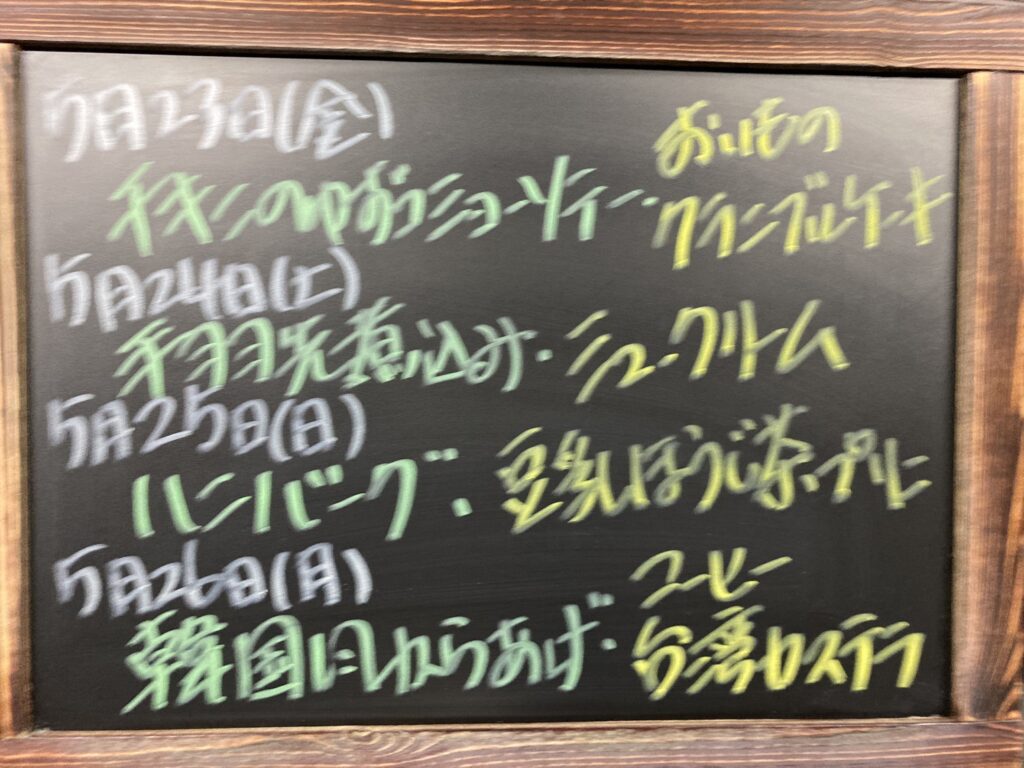 5月23日(金)
チキンの
おいもの
クランブルケーキ
5月24日(土)
手羽先煮込み・シュークリーム
5月25日(日)
ハンバーグ・豆乳ほうじ茶プリン
5月26日(月)
韓国風からあげ・
コーヒー
台湾カステラ